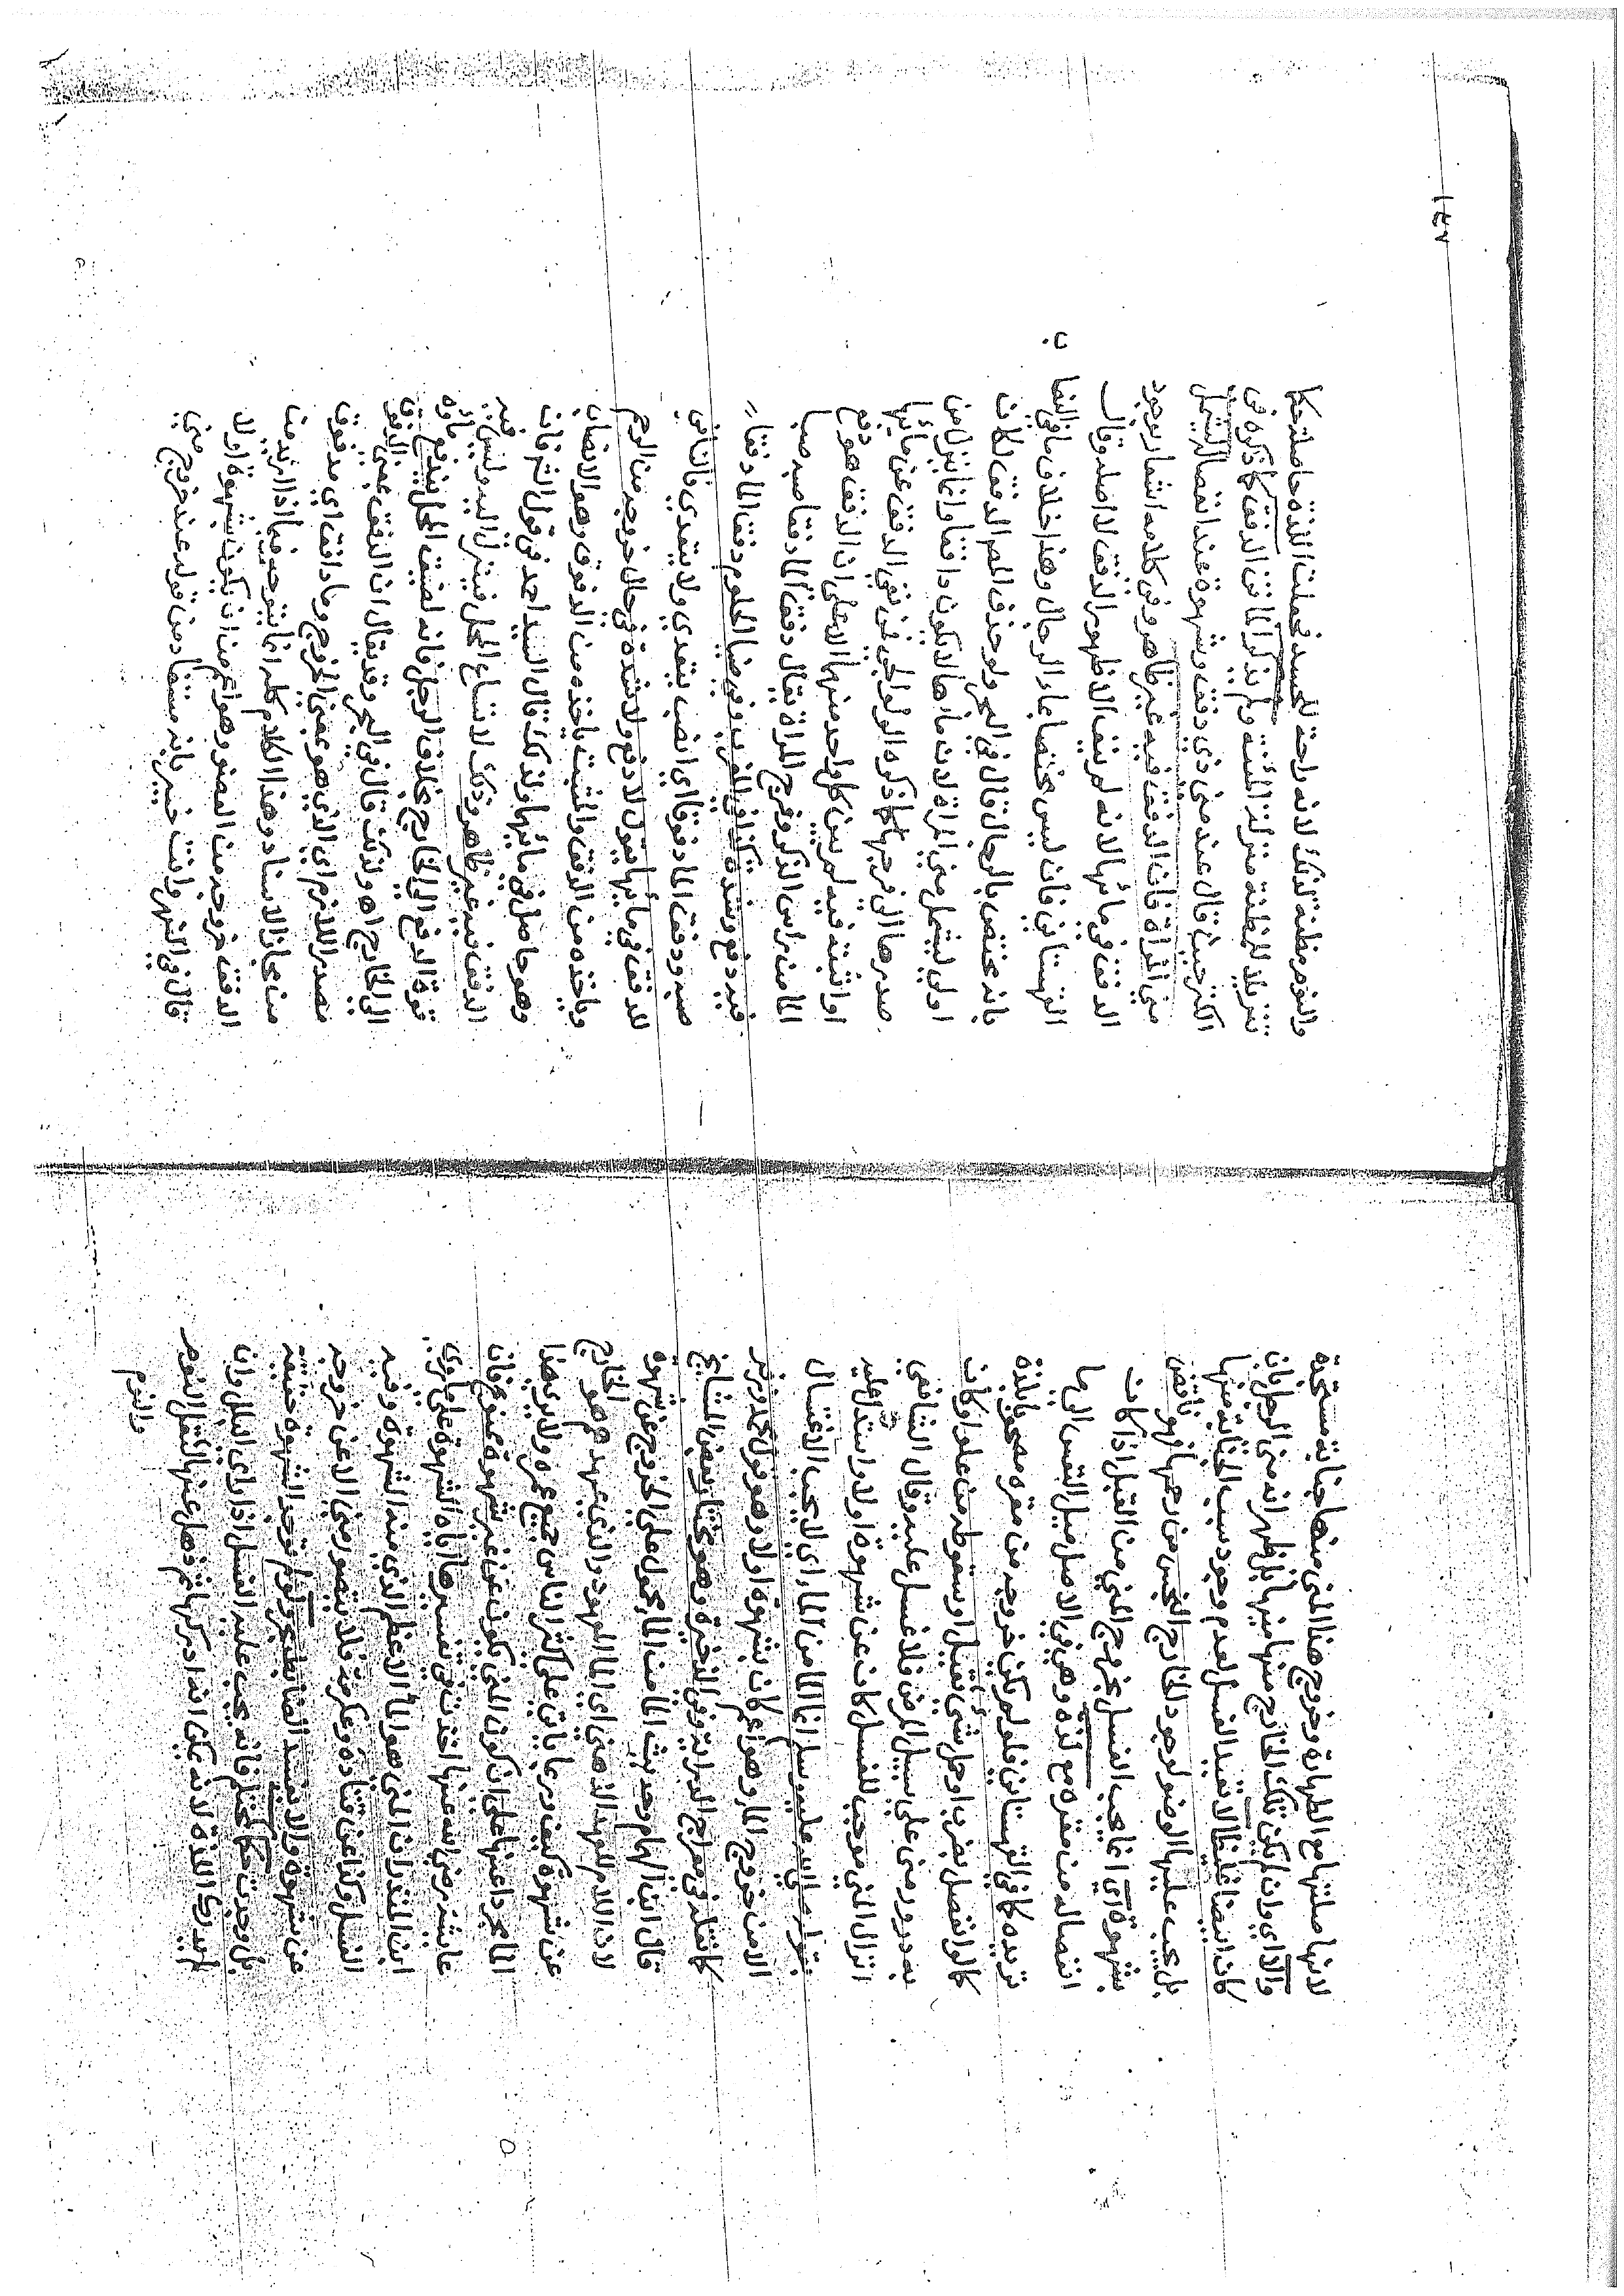 لانها صلتها مع الطهارة وخروج هذا المني منها جنابة مستجدة
والا اي وان لم يكن تلك الخارج منها منيها بل ظهر انه مني الرجل بان
كان ابيضا غليظا لا تعيد الغسل لعدم وجود سبب الجنابة منها
بل يجب عليها الوضو لوجود الخارج النجس من رحمها فهو ناقض
بشهوة اي انما يجب الغسل بخروج المني من القبل اذا كانت
انفصاله من مقره مع لذة وهي في الاصل ميل النفس الى ما
تريده كما في القهستاني فلو لم يكن خروجه من مقره مصحوبا بلذة
كما لو انفصل بضرب او حمل شئ ثقيل او سقوطه من علو او كان
به درور مني على سبيل المرض فلا غسل عليه وقال الشافعي
انزال المني موجب للغسل كان عن شهوة اولا واستدل عليه
بقوله صلى الله عليه وسلم انما الماء من الماء اي لا يجب الاغتسال
الا من خروج الماء وهو اعم كان بشهوة اولا وهو قول محمد وزفر
كما نقله في معراج الدراية وفي الذخيرة وهو مختار بعض المشايخ
قال ابن الهمام وحديث الماء من الماء محمول على الخروج عن شهوة
لان اللام للعهد الذهني اي الماء المعهود والذي به عهدهم هو الخارج
عن شهوة كيف وربما ياتي على اكثر الناس جميع عمره ولا يرى هذا
الماء مجردا عنها على ان كون المني يكون عن غير شهوة ممنوع فان
عايشة رضي الله عنها اخذت في تفسيرها اياه الشهوة على ما روى
ابن المنذر ان المني هو الماء الاعظم الذي منه الشهوة وفيه
الغسل وكذا عن قتادة وعكرمة فلا يتصور مني الا عن خروجه
عن شهوة والا يفسد الضابط بحر ولو لم توجد الشهوة حقيقة
بل وجدت حكما كمحتلم فانه يجب عليه الغسل اذا راى البلل وان
لم يدرك اللذة لانه يمكن انه ادركها ثم ذهل عنها لثقل النوم
والنوم
١٤٧
والنوم مظنة لذلك لانه راحة للجسد فجعلت اللذة حاصلة حكما
تنزيلا للمظنة منزلة المئنة ولم يذكر الماتن الدفق كما ذكره في
الكنز حيث قال عند مني ذي دفق وشهوة عند انفصاله ليشمل
مني المراة فان الدفق فيه غير ظاهر وفي كلامه اشعار بوجود
الدفق في مائها لانه لم ينف الا ظهور الدفق لا اصله وقال
القهستاني فانه ليس مختصا بماء الرجال وهذا خلاف ما في النقا
بانه مختص بالرجال قال في البحر ولو حذف المص الدفق لكان
اولى ليشمل مني المراة لان ماءها لا يكون دافقا وانما ينزل من
صدرها الى فرجها كما ذكره الولوالجي فمن نفى الدفق عن مائها
او اثبته فيه لم يبين كل واحد منهما الا على ان الدفق هو دفع
الماء من راس الذكر وفرج المراة يقال دفق الماء دفقا صبه صبا
فيه دفع وشدة كذا في المغرب وفي ضياء الحلوم دفق الماء دفقاء
صبه ودفق الماء دفوقا اي انصب يتعدى ولا يتعدى فالنافي
للدفق في مائها يقول لا دفع ولا شدة في حال خروجه من الرحم
وياخذه من الدفق والمثبت ياخذه من الدفوق وهو الانصباب
وهو حاصل في مائها ولذلك قال السيد احمد في قول الشرفان
الدفق فيه غير ظاهر وذلك لاتساع المحل فينزل اليه وليس فيه
قوة الدفع الى الخارج بخلاف الرجل فانه لضيق المحل يندفع ماؤه
الى الخارج اهـ ولذلك قال في البحر وقد يقال ان الدفق بمعنى الدفوق
مصدر اللازم اي الذي هو بمعنى الخروج وماء دافق اي مدفوق
من مجاز الاسناد وهذا الكلام كله انما يتوجه فيما اذا اريد من
الدفق خروجه من العضو وهو اعم من ان يكون بشهوة اولا
قال في النهر وانت خبير بانه مستفاد من قوله عند خروج مني